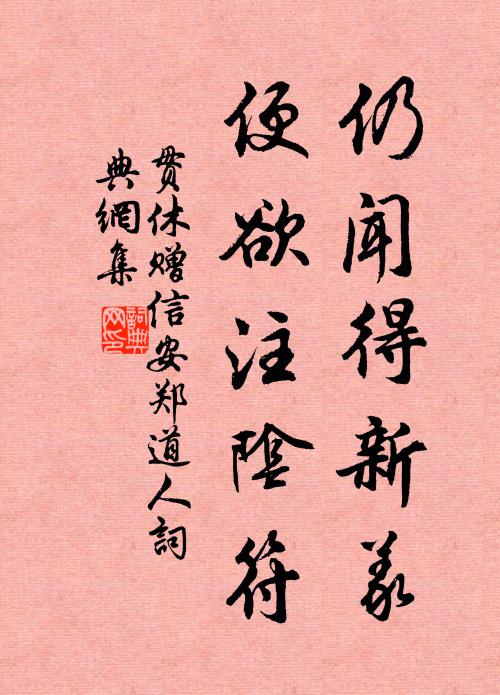 仍闻得新义
便欲注陰符
贯休赠信安郑道人詞
典網集
詞典
网印